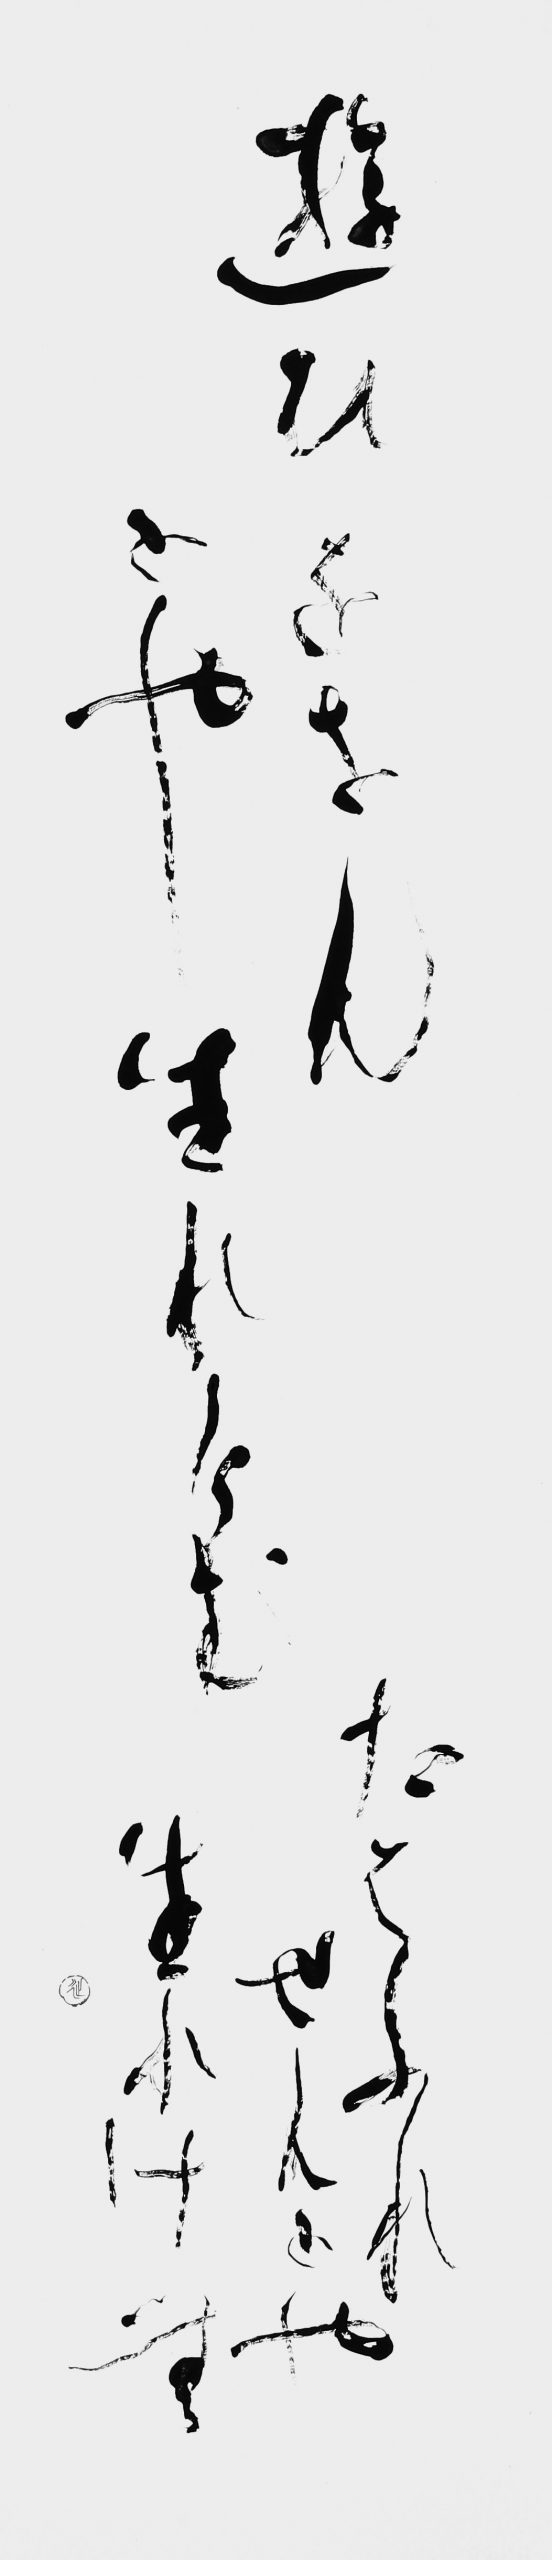 遊ひをせん
とや生れけむ
たはふれ
せんとや
生れけむ